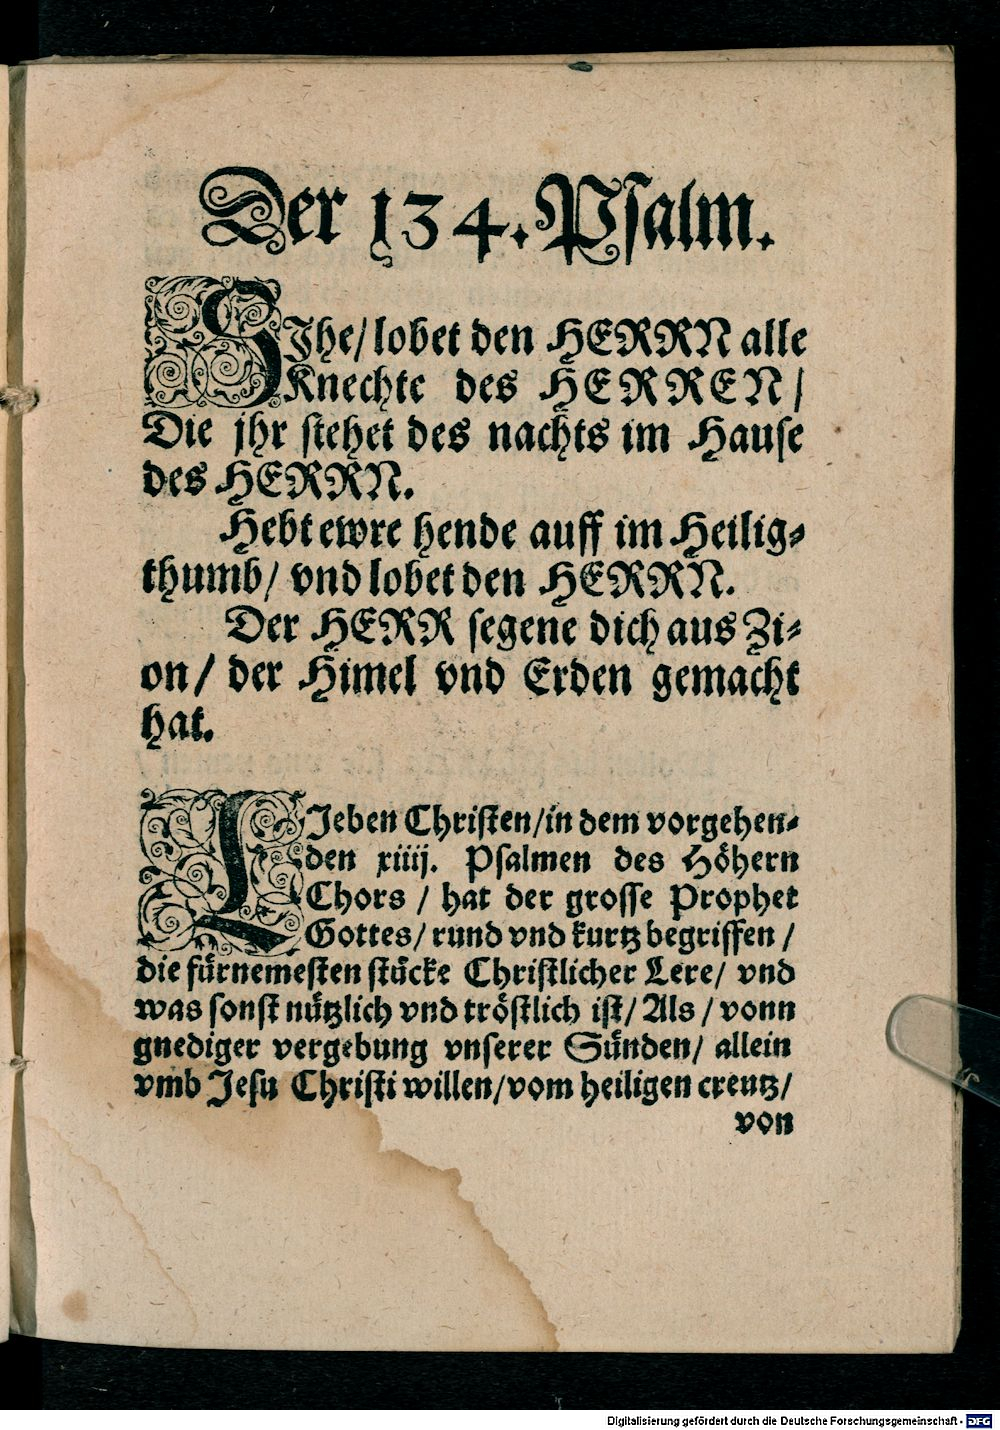 Der 134. Psalm.
SIhe/ lobet den HERRN alle
Knechte des HERREN/
Die jhr stehet des nachts im Hause
des HERRN.
Hebt ewre hende auff im Heilig⸗
thumb/ vnd lobet den HERRN.
Der HERR segene dich aus Zi⸗
on/ der Himel vnd Erden gemacht
hat.
LIeben Christen/ in dem vorgehen⸗
den xiiij. Psalmen des Höhern
Chors/ hat der grosse Prophet
Gottes/ rund vnd kurtz begriffen/
die fürnemesten stücke Christlicher Lere/ vnd
was sonst nützlich vnd tröstlich ist/ Als/ vonn
gnediger vergebung vnserer Sünden/ allein
vmb Jesu Christi willen/ vom heiligen creutz/
von
Digitalisierung gefördert durch die Deutsche Forschungsgemeinschaft - DFG